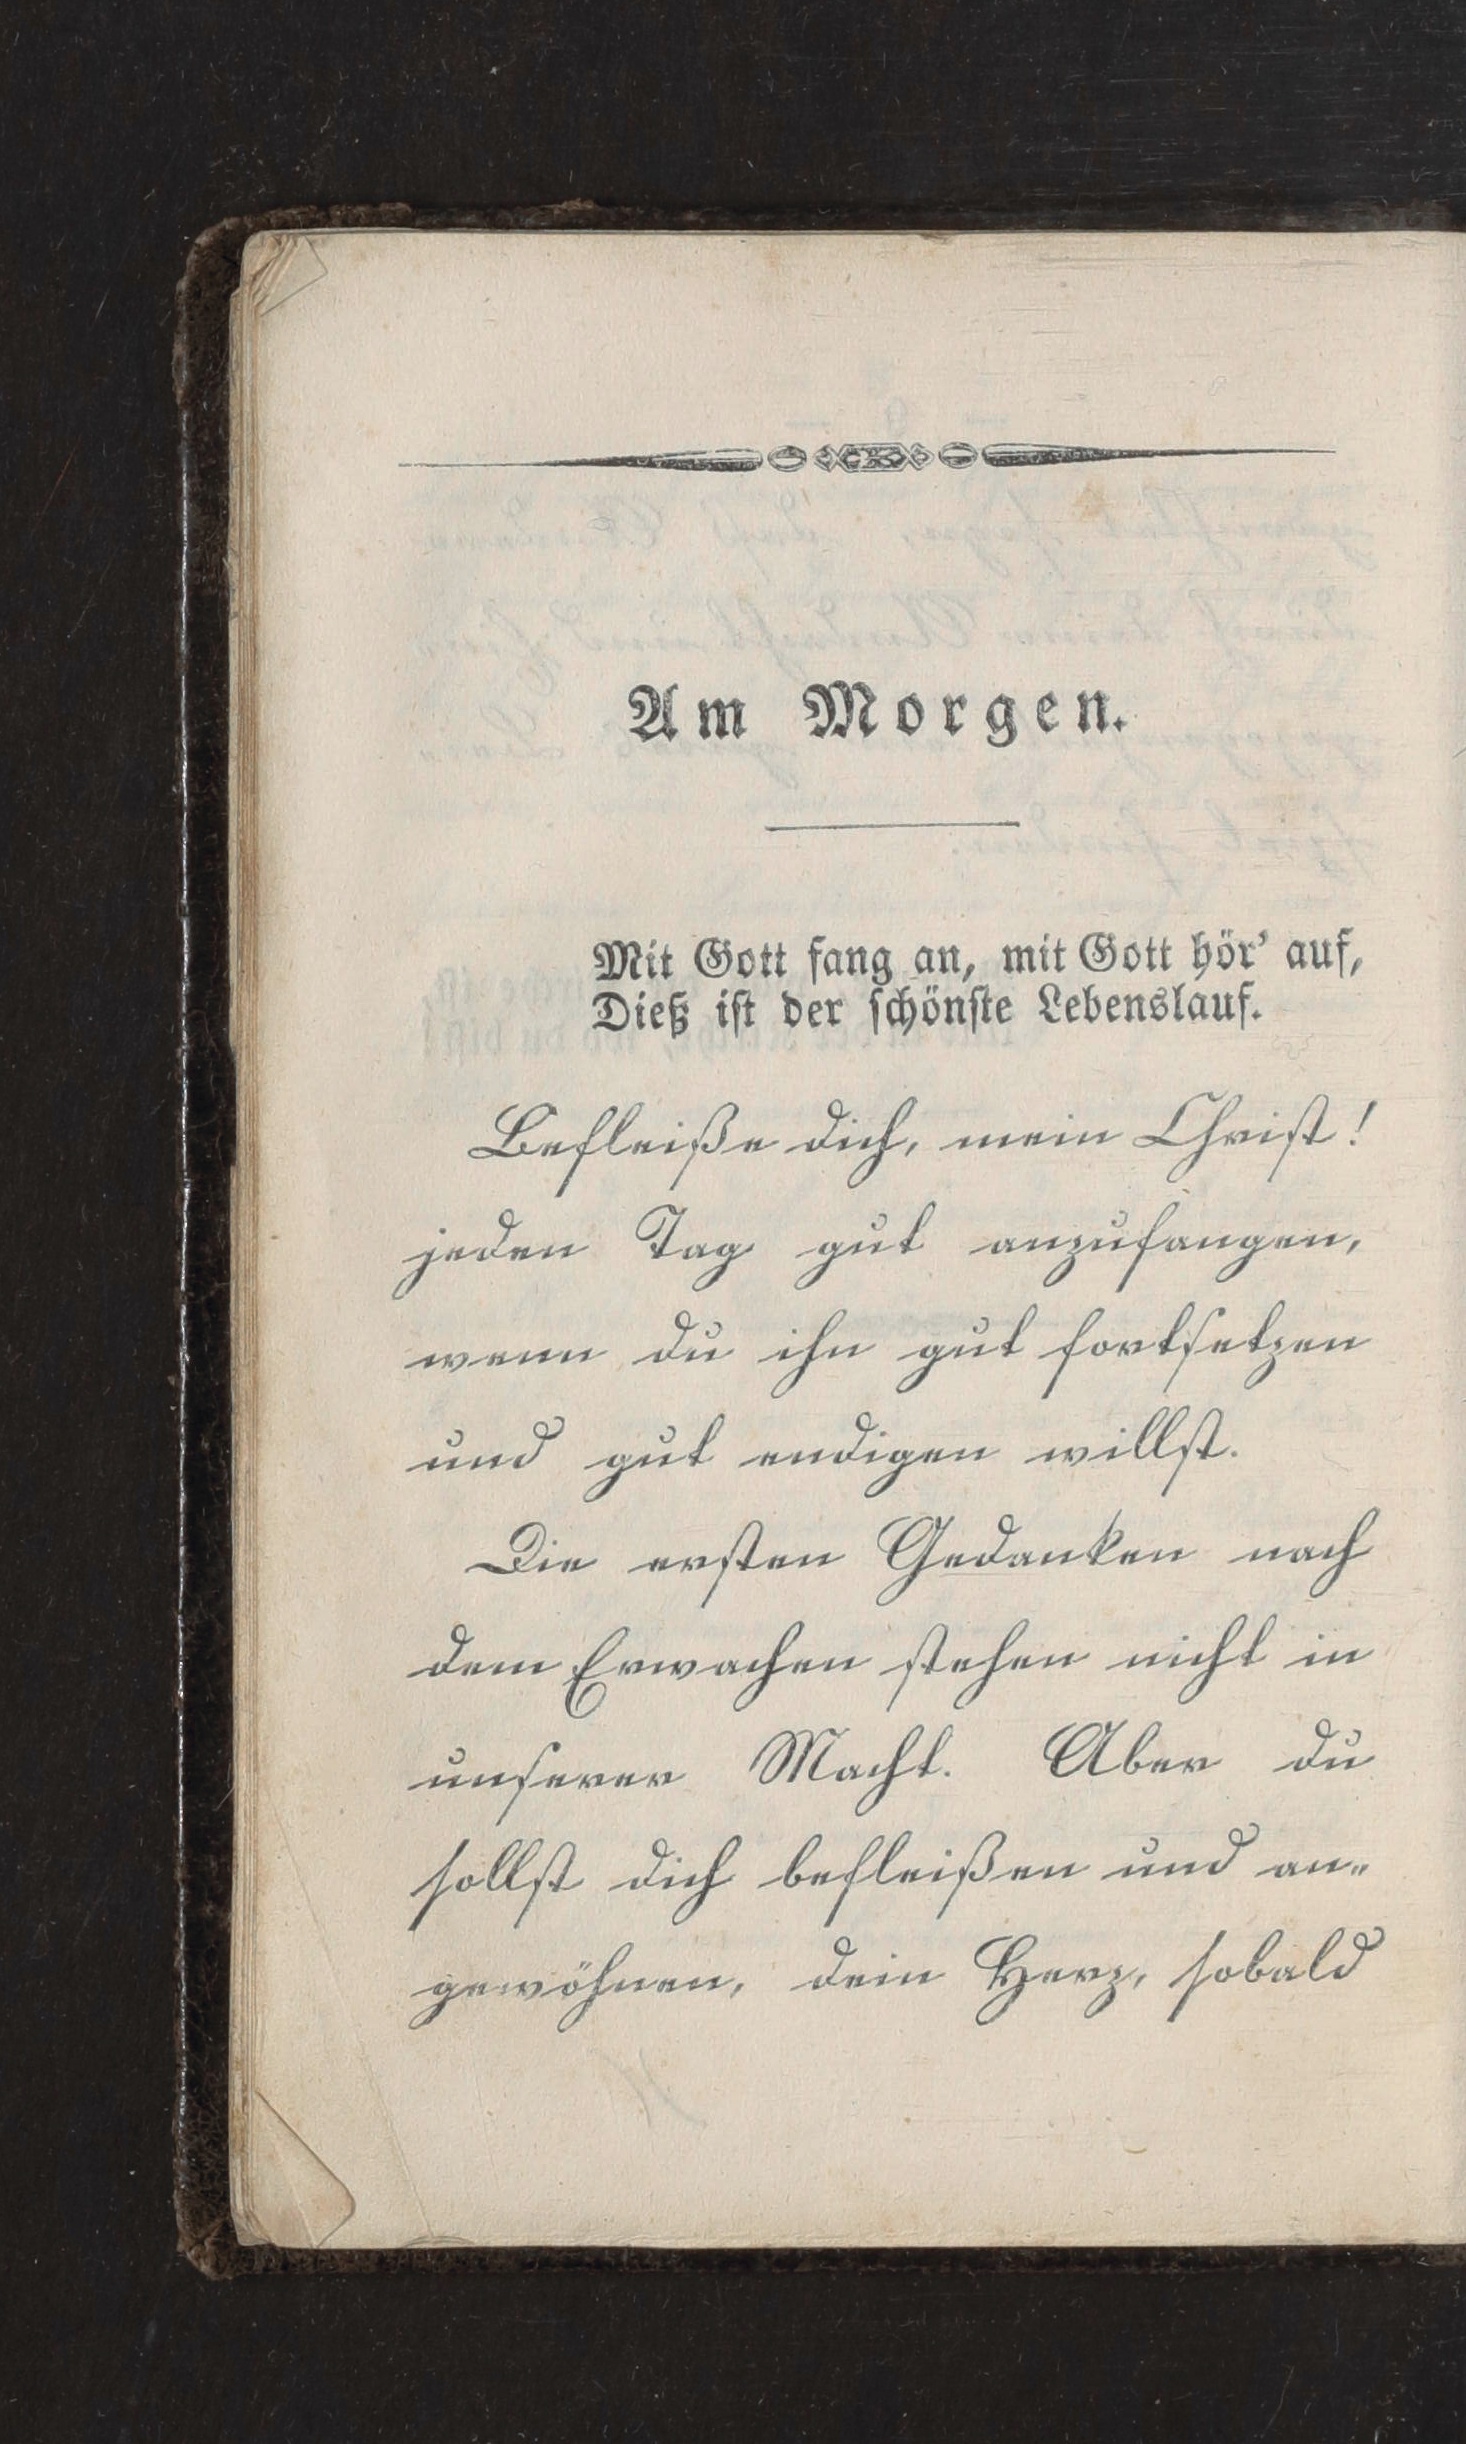 Am Morgen.
Mit Gott fang an, mit Gott hör' auf,
Dieß ist der schönste Lebenslauf.
Befleiße dich, mein Christ!
jeden Tag gut anzufangen,
wenn du ihn gut fortsetzen
und gut endigen willst.
Die ersten Gedanken nach
dem Erwachen stehen nicht in
unserer Macht. Aber du
sollst dich befleißen und an-
gewöhnen, dein Herz, sobald